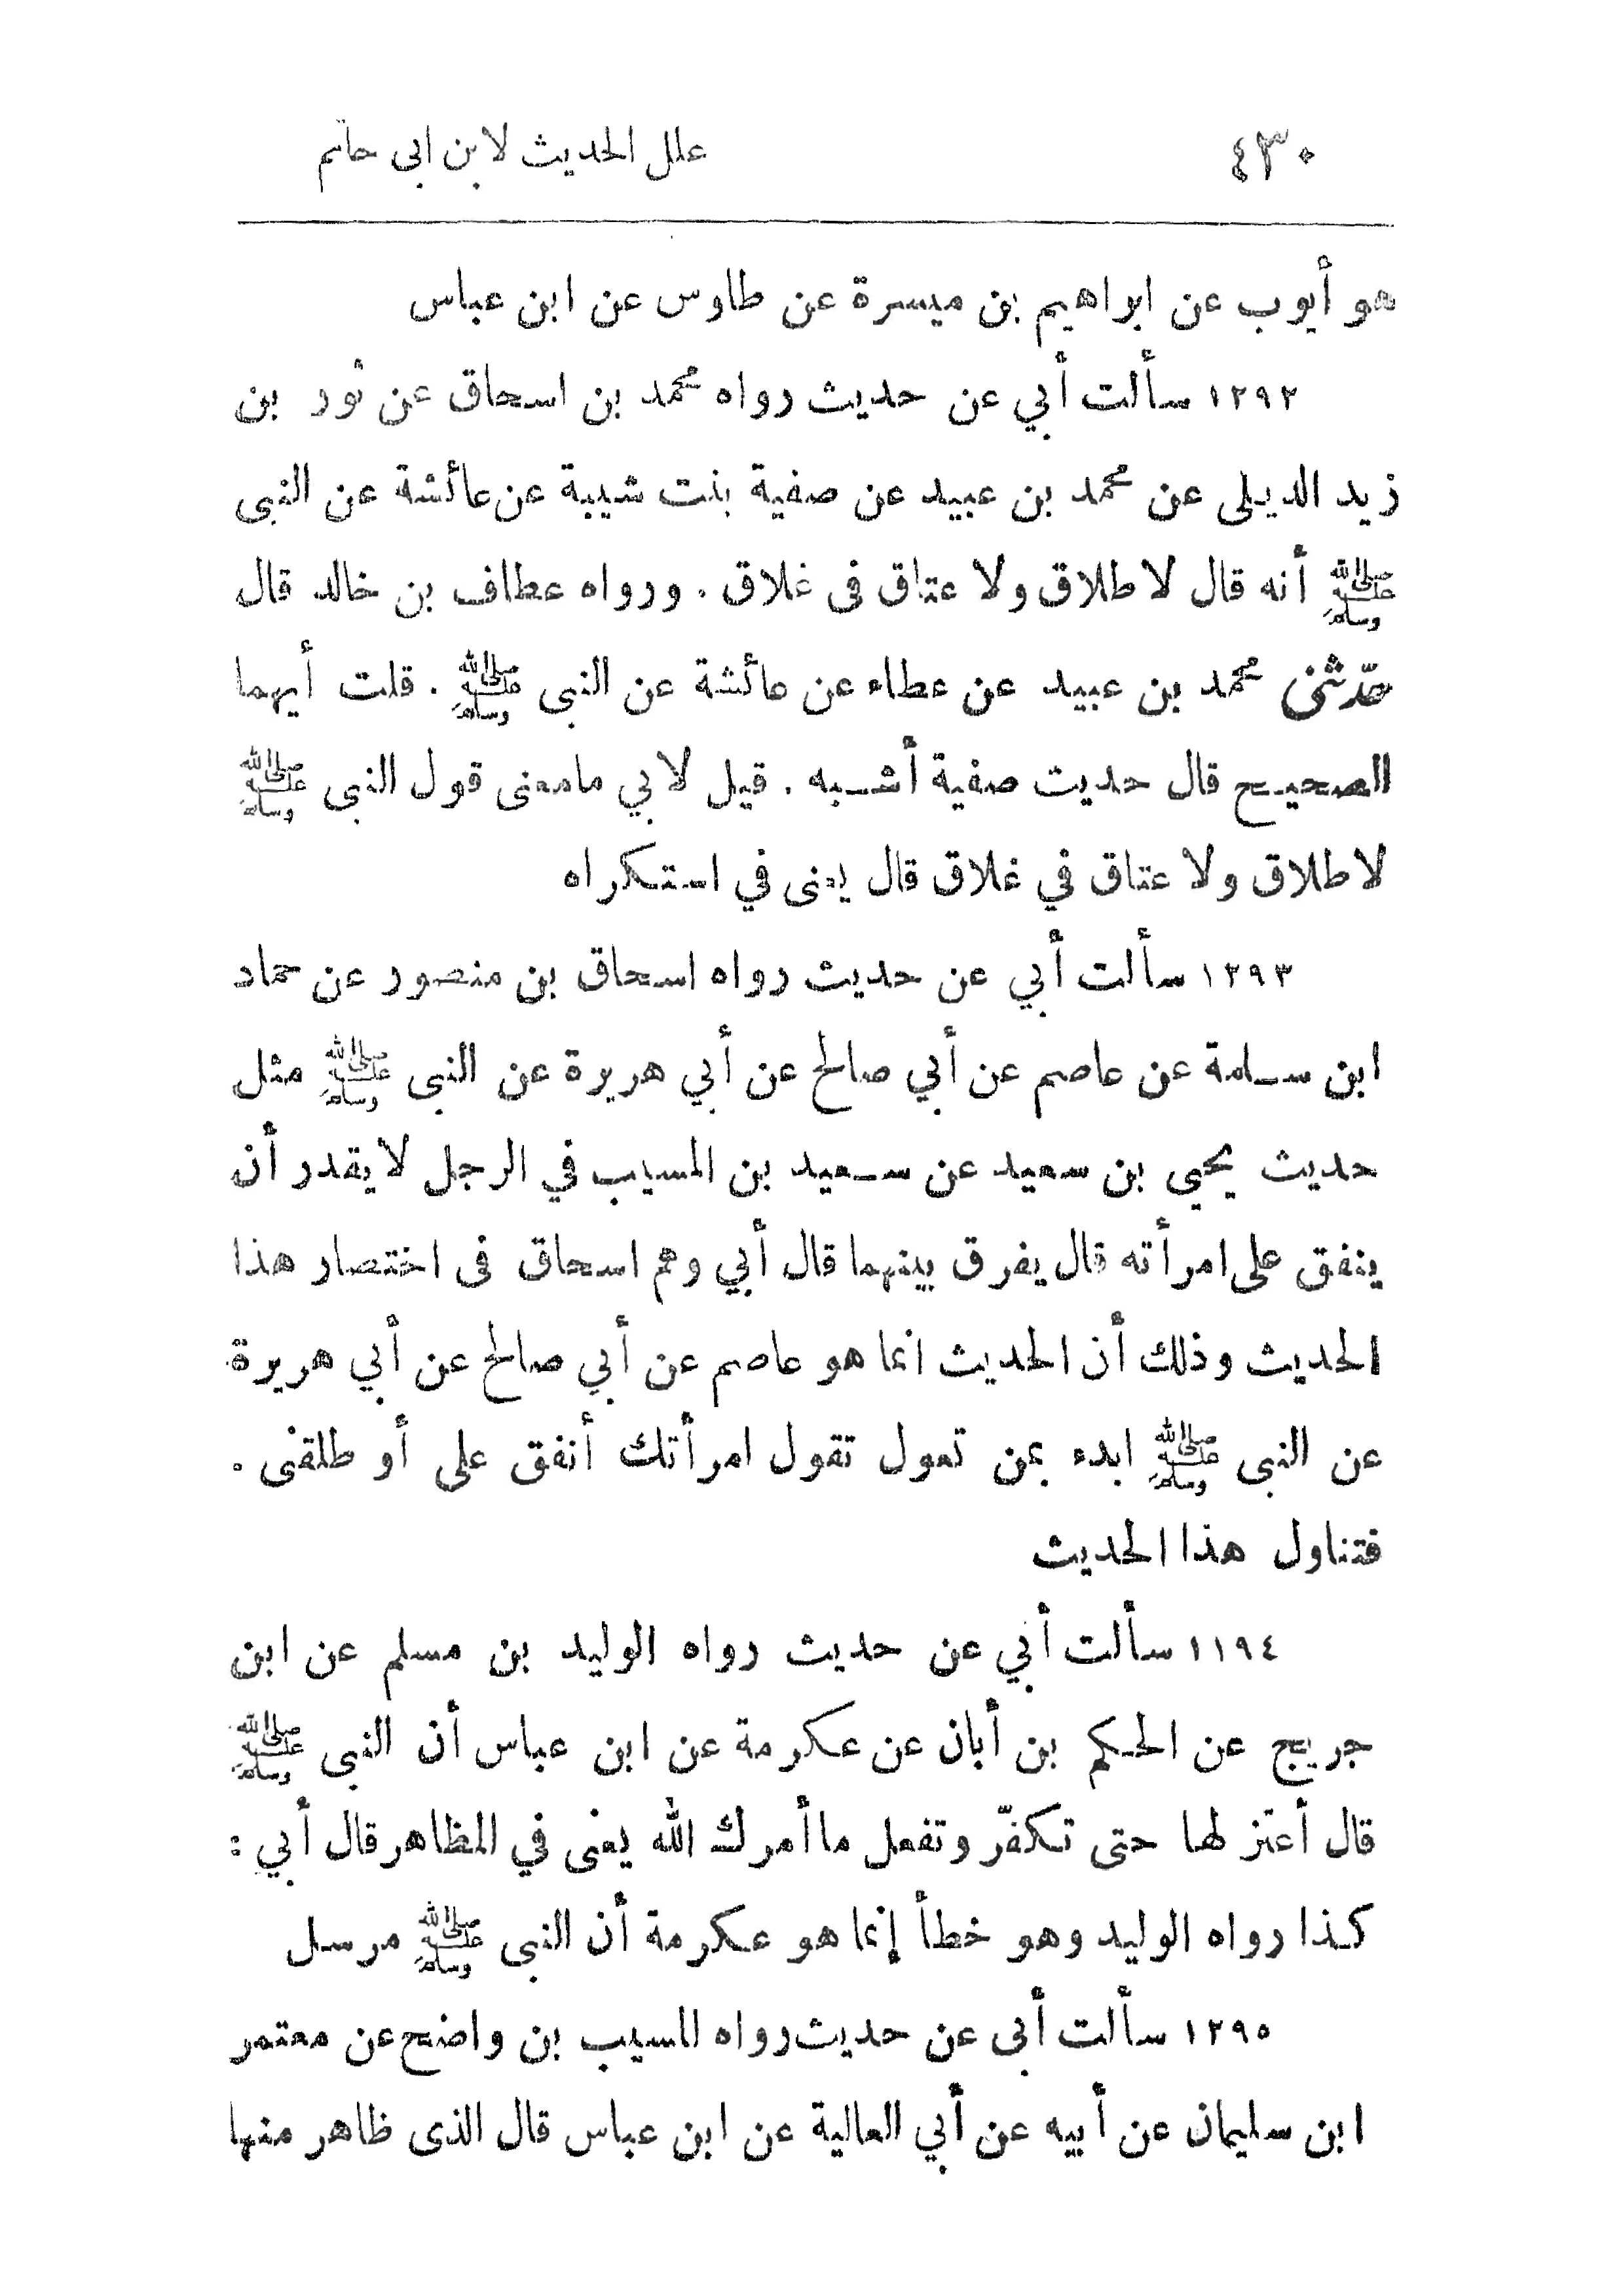 ٤٣٠ علل الحديث لابن ابى حاتم
هو أيوب عن ابراهيم بن ميسرة عن طاوس عن ابن عباس
١٢٩٢ سألت أبي عن حديث رواه محمد بن اسحاق عن ثور بن
زيد الديلى عن محمد بن عبيد عن صفية بنت شيبة عن عائشة عن النبى
ﷺ أنه قال لا طلاق ولا عتاق فى غلاق . ورواه عطاف بن خالد قال
حدّثنى محمد بن عبيد عن عطاء عن عائشة عن النبى ﷺ . قلت أيهما
الصحيح قال حديث صفية أشبه . قيل لابي مامعنى قول النبى ﷺ
لا طلاق ولا عتاق في غلاق قال يعنى في استكراه
١٢٩٣ سألت أبي عن حديث رواه اسحاق بن منصور عن حماد
ابن سلمة عن عاصم عن أبي صالح عن أبي هريرة عن النبى ﷺ مثل
حديث يحيى بن سعيد عن سعيد بن المسيب في الرجل لا يقدر أن
ينفق على امرأته قال يفرق بينهما قال أبي وهم اسحاق فى اختصار هذا
الحديث وذلك أن الحديث انما هو عاصم عن أبي صالح عن أبي هريرة
عن النبى ﷺ ابدء بمن تعول تقول امرأتك أنفق على أو طلقنى .
فتناول هذا الحديث
١١٩٤ سألت أبي عن حديث رواه الوليد بن مسلم عن ابن
جريج عن الحكم بن أبان عن عكرمة عن ابن عباس أن النبى ﷺ
قال أعتزلها حتى تكفّر وتفعل ما أمرك الله يعنى في المظاهر قال أبي :
كذا رواه الوليد وهو خطأ إنما هو عكرمة أن النبى ﷺ مرسل
١٢٩٥ سألت أبى عن حديث رواه المسيب بن واضح عن معتمر
ابن سليمان عن أبيه عن أبي العالية عن ابن عباس قال الذى ظاهر منها